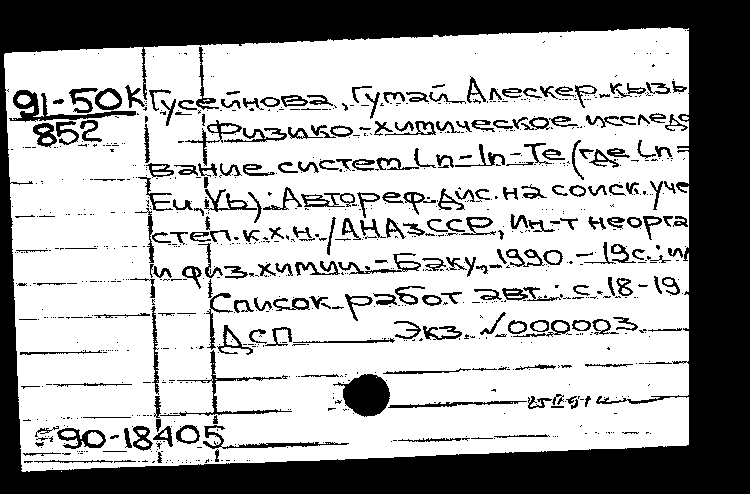 91-50К Гусейнова, Гутай Алескер кызы
852 Физико-химическое исследо
вание систем Ln-In-Te (где Ln=
Eu, Yb): Автореф. дис. на соиск. уче
степ. к.х.н. / АН АзССР, Ин-т неорга
и физ. химии. - Баку, 1990. - 19с.: ил
Список работ авт.: с. 18-19.
ДСП Экз. №000003
90-18405